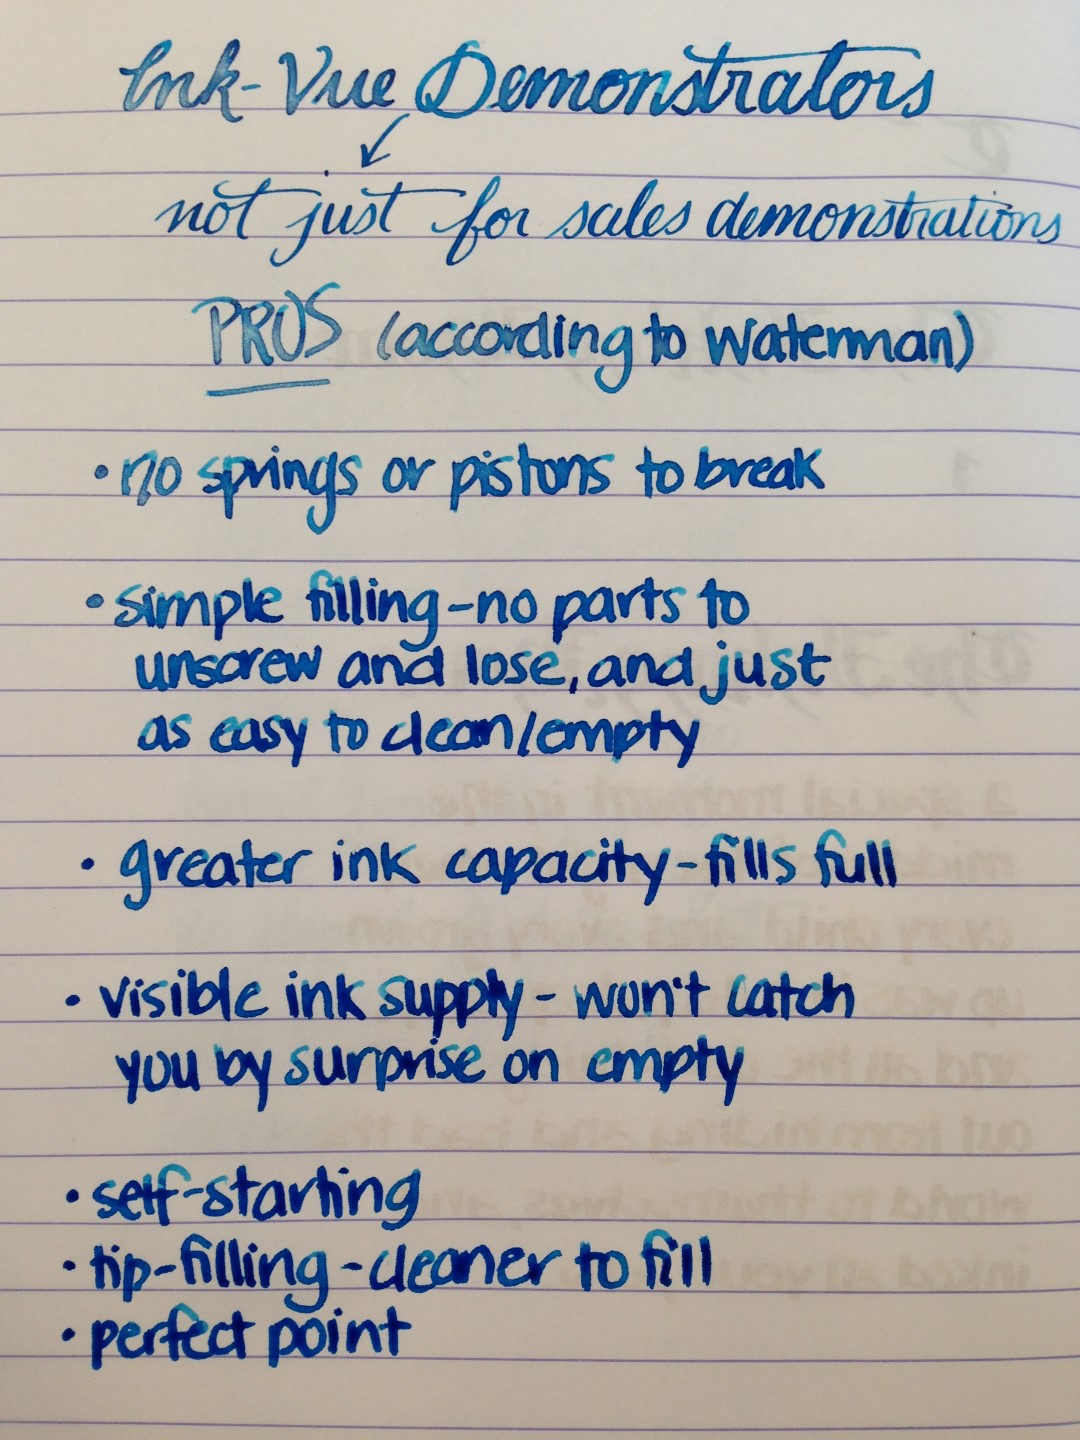 Ink-Vue Demonstrators
not just for sales demonstrations
PROS (according to Waterman)
• no springs or pistons to break
• simple filling - no parts to
unscrew and lose, and just
as easy to clean/empty
• greater ink capacity - fills full
• visible ink supply - won't catch
you by surprise on empty
• self-starting
• tip-filling - cleaner to fill
• perfect point